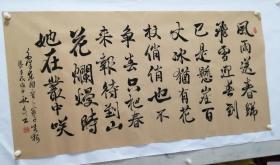 風雨送春歸
飛雪迎春到
已是懸崖百
丈冰猶有花
枝俏俏也不
争春只把春
来報待到山
花爛熳時
她在叢中咲